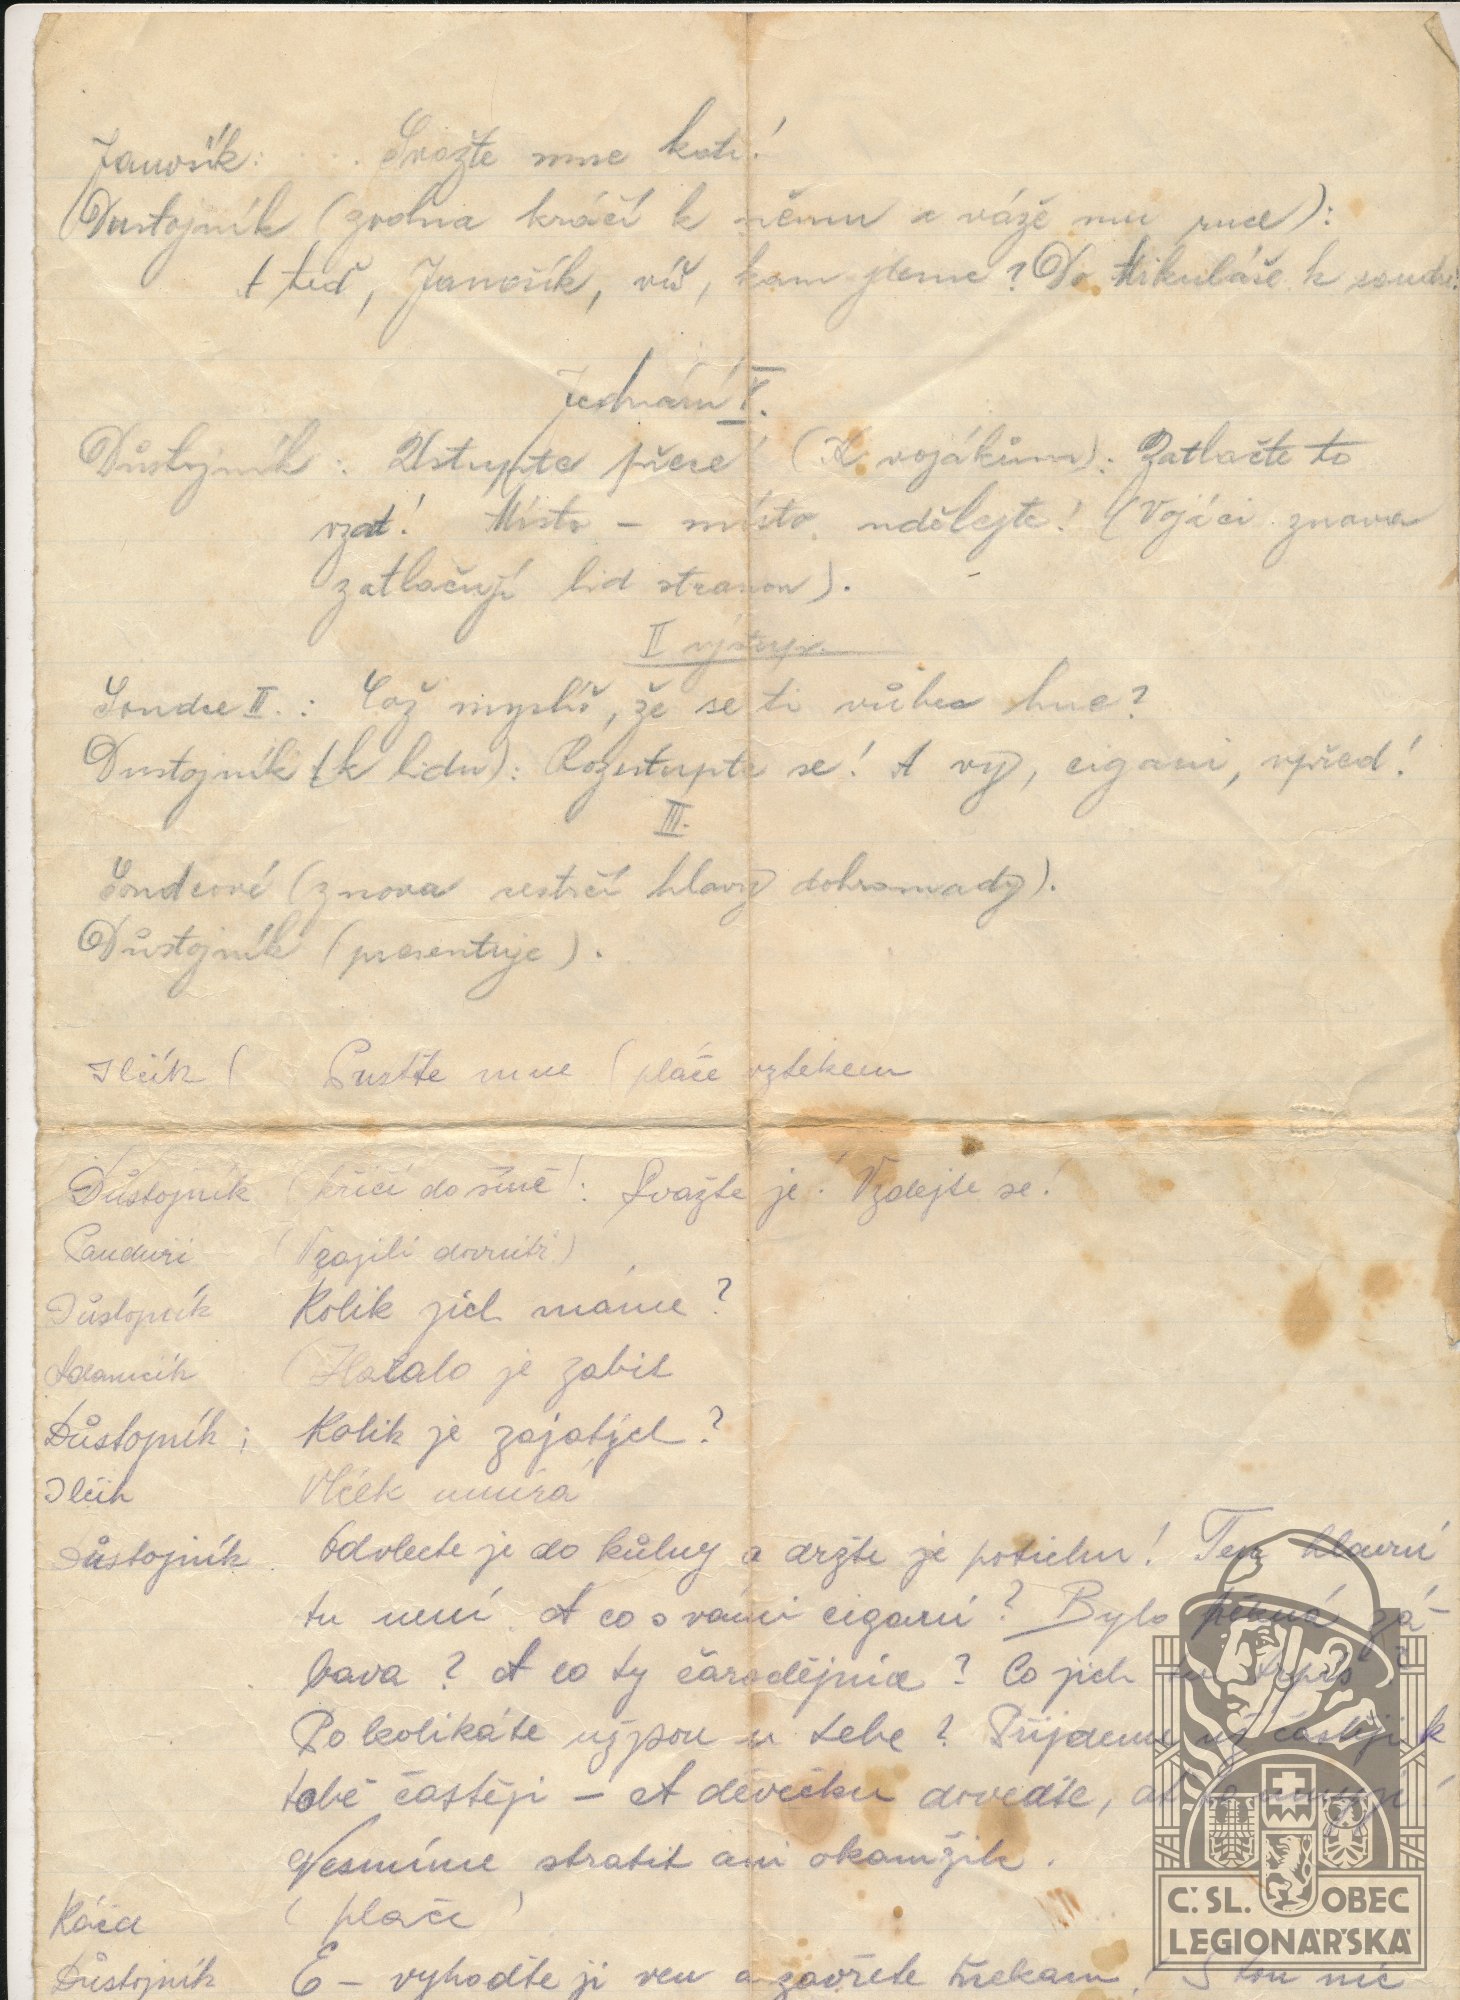 Janošík: . . . . Svažte mne kati!
Dustojník (zvolna kráčí k němu a váže mu ruce):
A teď, Janošík, víš, kam jdeme? Do Mikuláše k soudu!
Jednání V.
Důstojník: Ustupte přece! (K vojákům): Zatlačte to
vzad! Místo – místo udělejte! (Vojáci znova
zatlačují lid stranou).
II výstup.
Soudce II.: Což myslíš, že se ti vůbec hne?
Dustojník (k lidu): Rozstupte se! A vy, cigani, vpřed!
III.
Soudcové (znova sestrčí hlavy dohromady).
Důstojník (presentuje).
Ilčík ( Pusťte mne (pláče vztekem
Důstojník (křičí do síně!: Svažte je! Vzdejte se!
Panduři (Vrazili dovnitř)
Důstojník Kolik jich máme?
Adamčík (Hatalo je zabit
Důstojník: Kolik je zajatých?
Ilčík Vlček umírá
Důstojník Odvlečte je do kůlny a držte je potichu! Ten hlavní
tu není. A co s vámi cigani? Bylo pěkná zá-
bava? A co ty čarodějnice? Co jich tu
Po kolikáte už jsou u tebe? Přijdeme už častěji k
tobě častěji – A děvečku doveďte, ať
Nesmíme stratit ani okamžik.
Káča (pláče)
Důstojník E – vyhoďte ji ven a zavřete S tou nic
C.SL. OBEC
LEGIONÁŘSKÁ